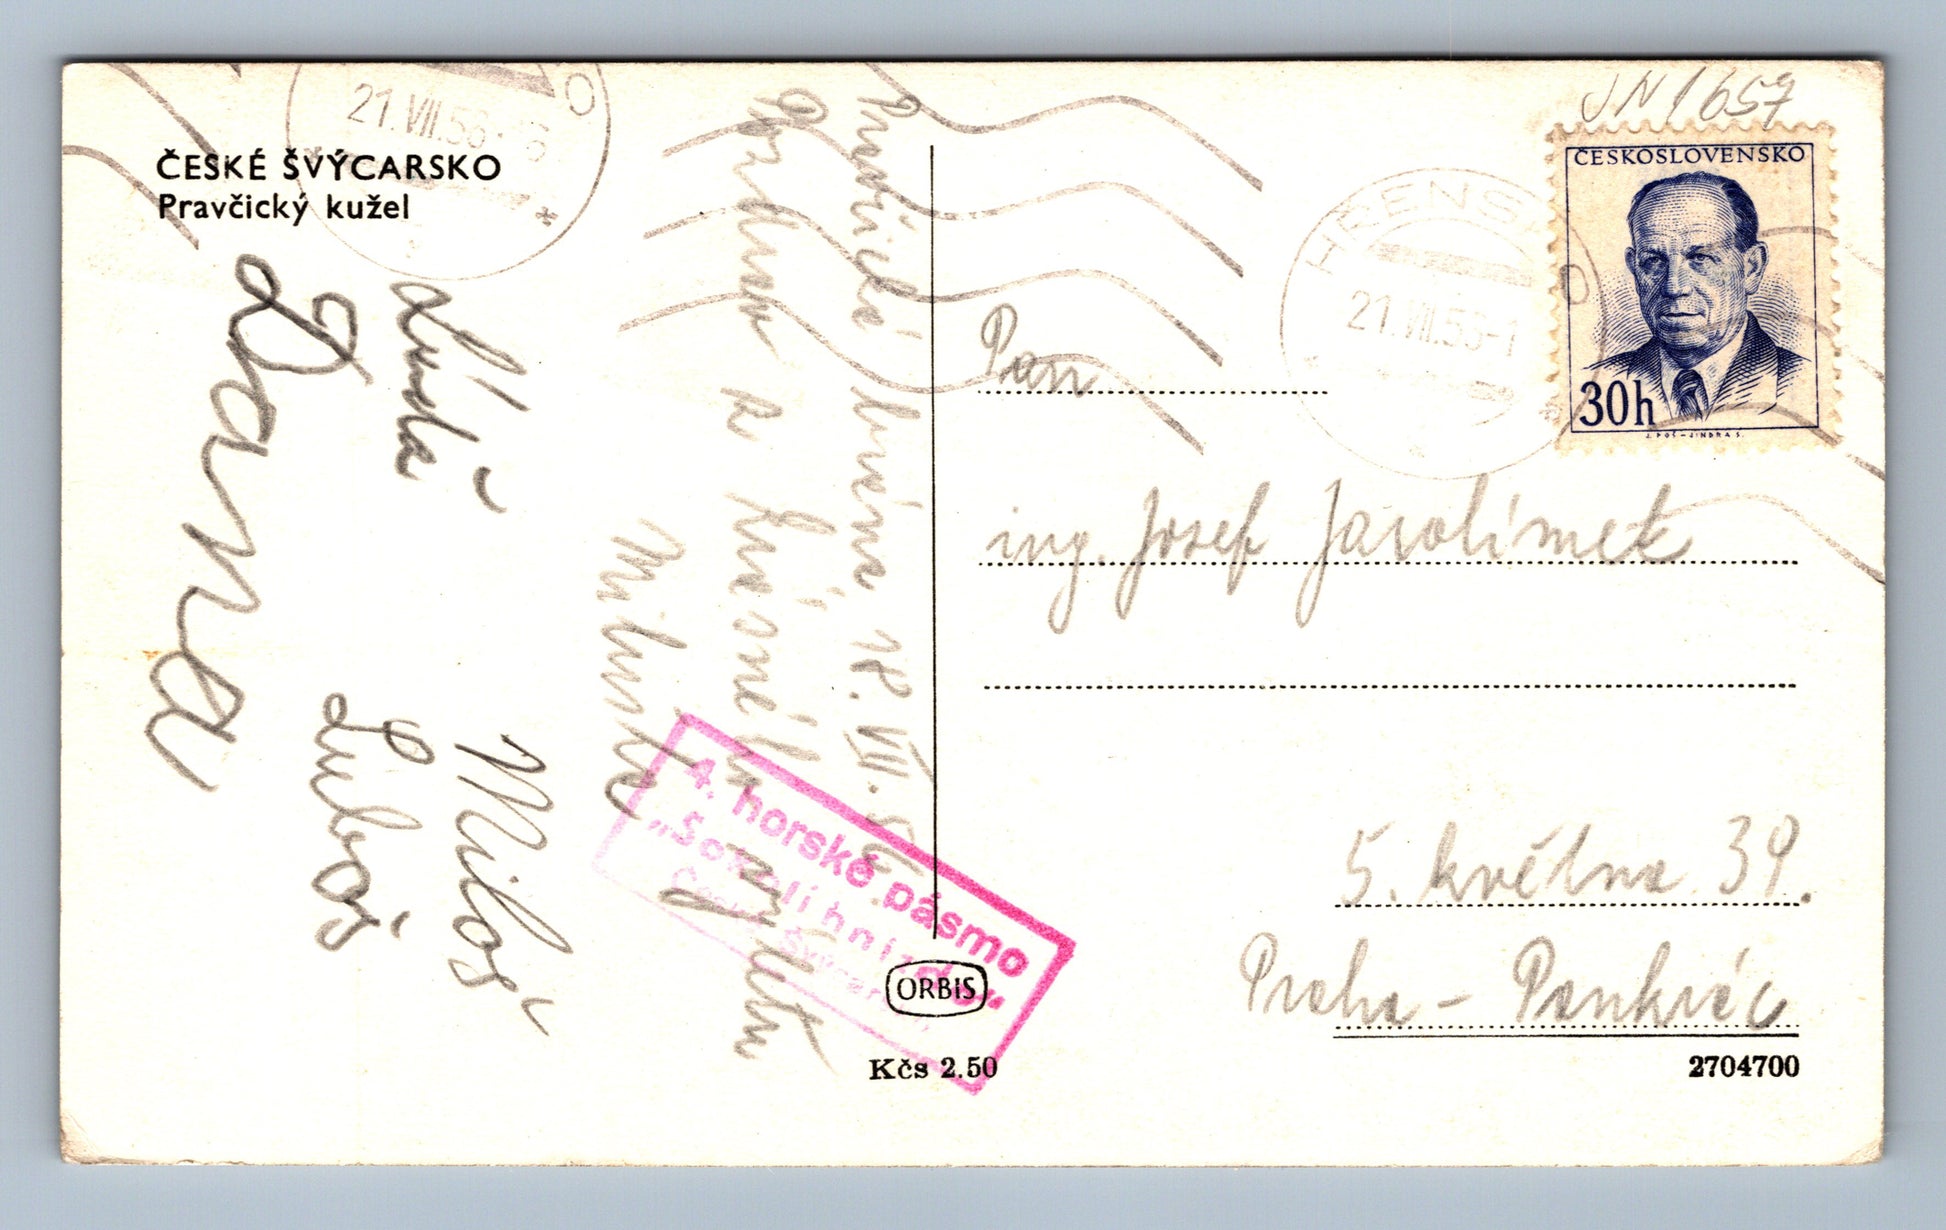 ČESKÉ ŠVÝCARSKO
Pravčický kužel
21.VII.56
Pravčická brána 18. VII. 56.
Pozdrav z krásného výletu
Miluška
Luda
Dana
Miloš
Luboš
4. horské pásmo
„Sokolí hnízdo“
České Švýcarsko
ORBIS
Kčs 2.50
JN1657
ČESKOSLOVENSKO
30h
J. POŠ-JINDRA S.
HŘENSKO
21.VII.56-1
Pan
ing. Josef Jarolímek
5. května 39.
Praha - Pankrác
2704700